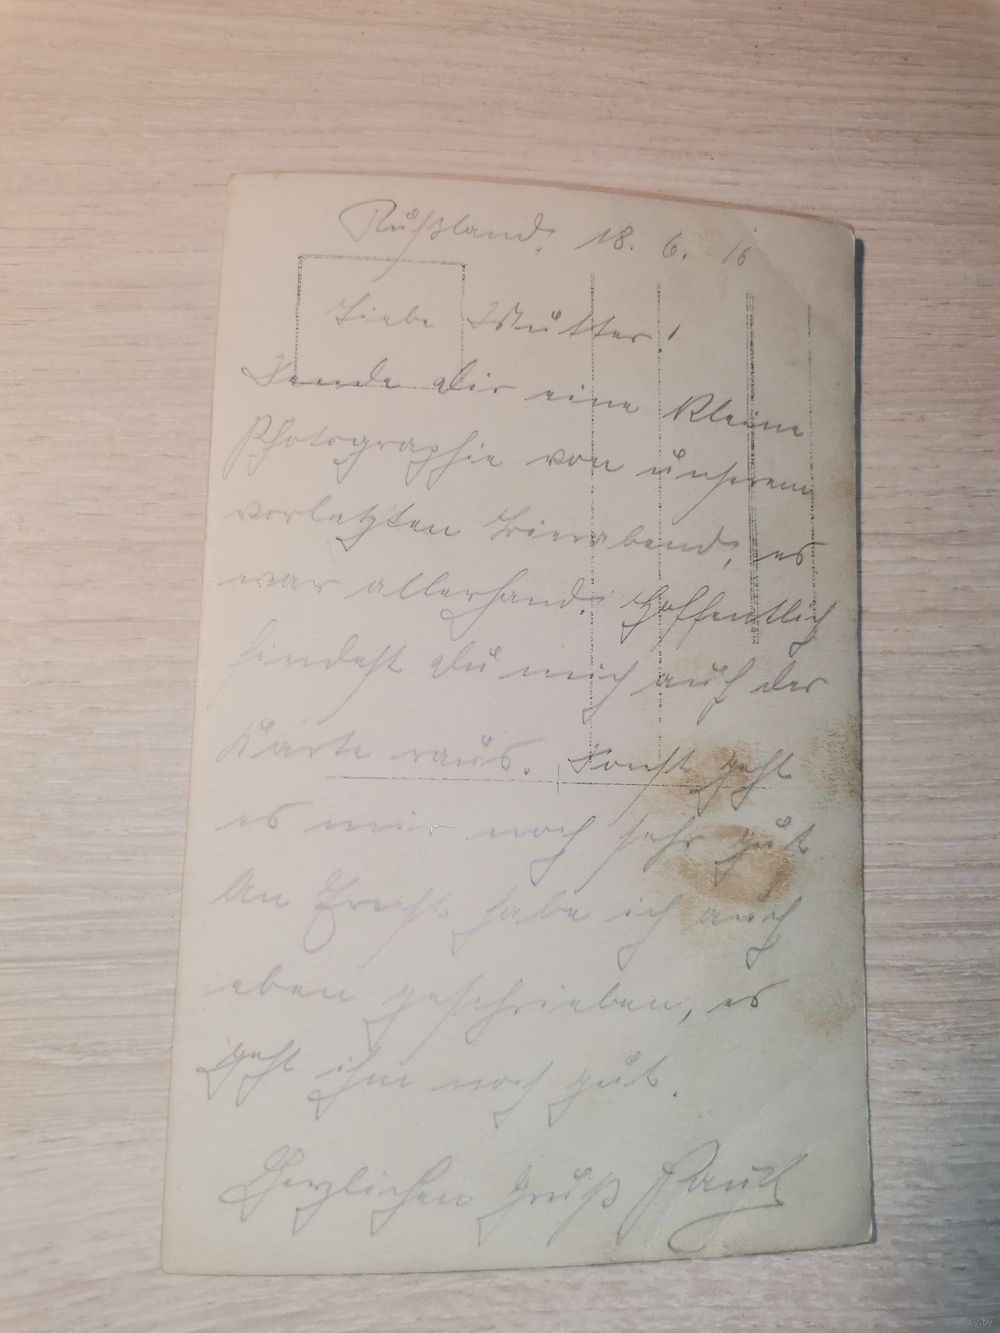 Rußland, 18. 6. 16
Liebe Mutter!
Sende Dir eine kleine
Photographie von unserem
vorletzten Bierabend, es
war allerhand. Hoffentlich
findest Du mich auf der
Karte raus. Sonst geht
es mir noch sehr gut
An Ernst habe ich auch
eben geschrieben, es
geht ihm noch gut.
Herzlichen Gruß Paul
ay.by